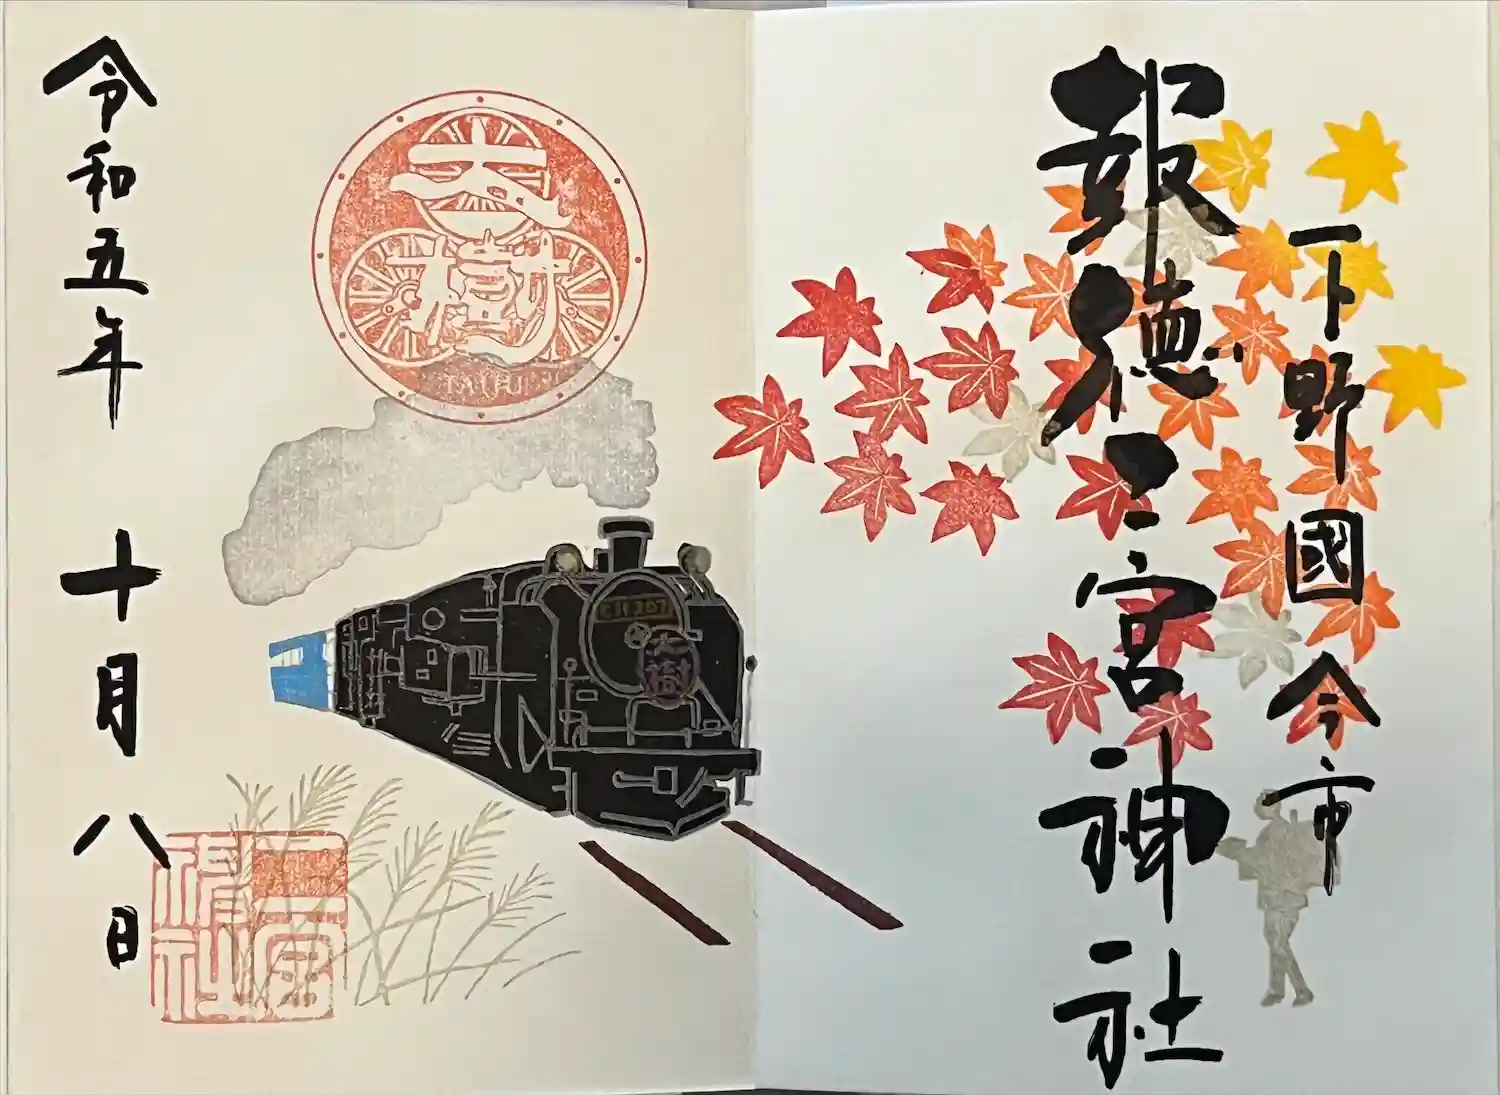 下野國今市
報徳二宮神社
大樹
TAIJU
C11 207
大樹
令和五年 十月八日